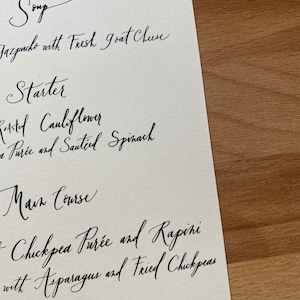 Soup
Gazpacho with Fresh Goat Cheese
Starter
Cauliflower
Purée and Sautéed Spinach
Main Course
Chickpea Purée and Rapini
with Asparagus and Fried Chickpeas